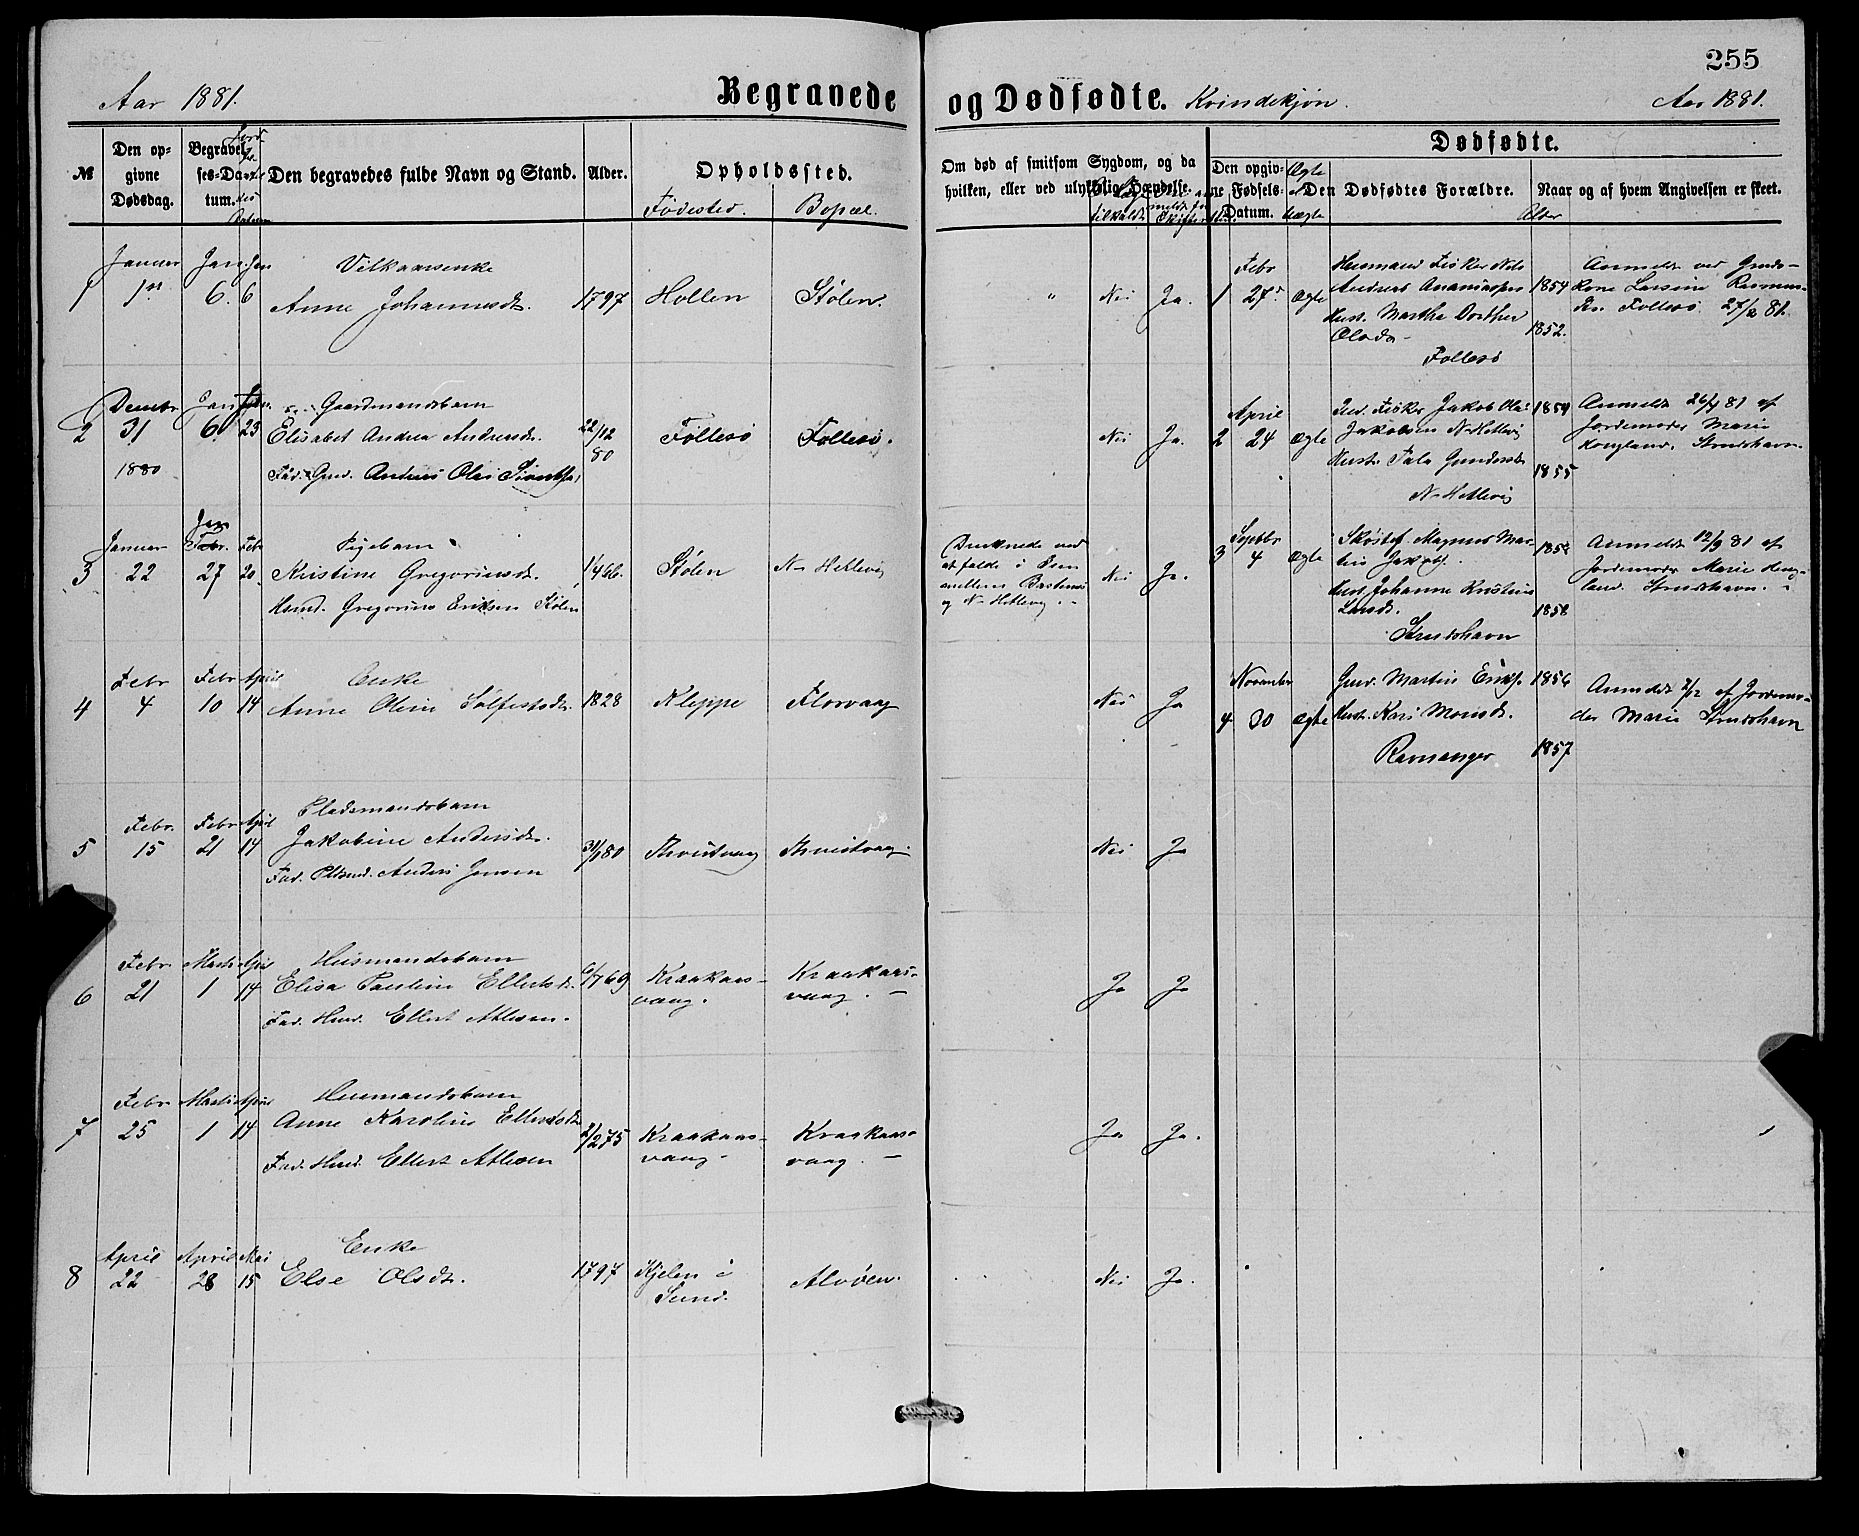 255
Aar 1881.
Begravede
og Dødfødte. Kvindekjøn.
Aar 1881.
№
Den opgivne Dødsdag.
Begravelses-Datum.
Den begravedes fulde Navn og Stand.
Alder.
Opholdssted.
Fødested.
Bopæl.
Om død af smitsom Sygdom, og da hvilken, eller ved ulykkelig Hændelse.
tilkaldt
Dødfødte.
Den opgivne Fødsels-Datum.
Ægte
Uægte
Den Dødfødtes Forældre.
Alder
Naar og af hvem Angivelsen er skeet.
Januar Jan. Jan Vilkaarsenke
1 1ste 6. 6 Anne Johannesdr. 1797 Hollen Stølen. " Nei Ja.
Decmbr Jan. Gaardmandsbarn
2 31 6. 23 Elisabet Andrea Andersdr. 22/12 80 Follesø Follesø. Nei Ja.
1880 Fad. Grd. Anders Olai
Januar Jan Febr. Febr Pigebarn
3 22 27 20 Kristine Gregoriusdr. 1/4 66. Stølen N. Hetlevig Nei Ja.
Husmd. Gregorius Eriksen Stølen
Druknede ved
at falde i Søen
mellem
og N. Hetlevig.
Febr Febr April Enke
4 4 10 14 Anne Oline Solfestsdr. 1828 Kleppe Florvaag Nei Ja
Febr. Febr April Pladsmandsbarn
5 15 21 14 Jakobine Andersdr. 31/1 80 Nei Ja
Fad. Plsmd. Anders Jensen
Febr Marts April Husmandsbarn
6 21 1 14 Elisa Pauline Ellertsdr. 6/7 69 Kraakaasvaag. Kraakaasvaag. Ja Ja
Fad. Husmd. Ellert Atlesen.
Febr Marts April Husmandsbarn
7 25 1 14 Anne Karoline Ellertsdr 2/2 75 Kraakaasvaag Kraakaasvaag. Ja Ja.
Fad. Husmd. Ellert Atlesen
April April Mai Enke
8 22 28 15 Else Olsdr. 1797 Kjelen i Sund. Alvøen. Nei Ja.
Febr Husmand Fisker Nils
1 27de Ægte Andreas Ananiassen 1854
Hust. Martha Dorthea 1852.
Olsdr
Follesø
Anmeldt ved Grd.
kone Larsine Rasmus-
dr. Follesø. 27/2 81.
April Ind. Fisker Jakob Olai 1854
2 24 Ægte Jakobsen N. Hetlevig
Hustr. Tala Gundersdr. 1855
N. Hetlevig
Anmeldt 26/4 81 af
Jordemoder Marie
Hougland. Strudshavn.
Septbr Magnus Martin
3 4 Ægte Jakobs.
Hust. Johanne Kristine
Larsdr. 1858
Strudshavn
Anmeldt 12/9 81 af
Jordemoder Marie Hougland.
Strudshavn.
November Grd. Martin Eriks. 1856
4 30 Ægte Hustr. Kari Monsdr.
Ravnanger 1857
Anmeldt 7/12 af Jordemoder
Marie Strudshavn